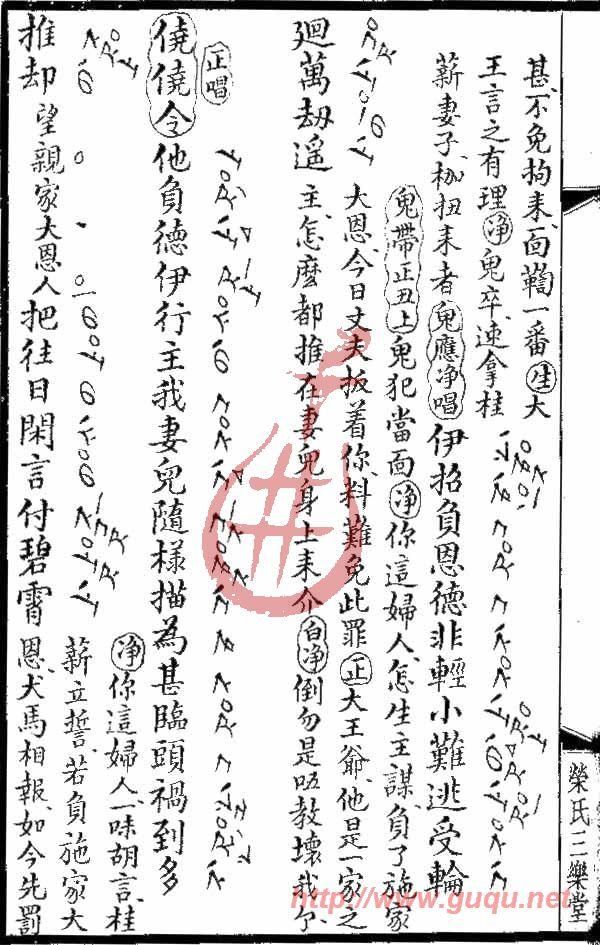 甚、不免拘来面鞫一番生大
王言之有理净鬼卒、速拿桂
薪妻子、枷扭来者鬼應净唱伊招負恩德非輕小難逃受輪
廻萬劫遥
鬼帶正丑上鬼犯當面净你這婦人、怎生主謀、負了施家
大恩、今日丈夫扳着你料難免此罪正大王爺、他是一家之
主、怎麽都推在妻兒身上来介白净倒勿是教壞我
正唱
僥僥令他負德伊行主我妻兒隨樣描為甚臨頭禍到多
推却望親家大恩人把往日閑言付碧霄
净你這婦人、一味胡言、桂
薪立誓、若負施家大
恩、犬馬相報、如今先罰
榮氏三樂堂
http://www.guqu.net